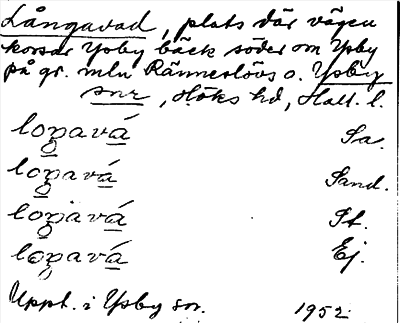 Långavad, plats där vägen
korsar Ysby bäck söder om Ysby
på gr. mln Ränneslövs o. Ysby
snr, Höks hd, Hall. l.
loŋavá Sa.
loŋavá Sand.
loŋavá St.
loŋavá Ej.
Uppt. i Ysby sn. 1952